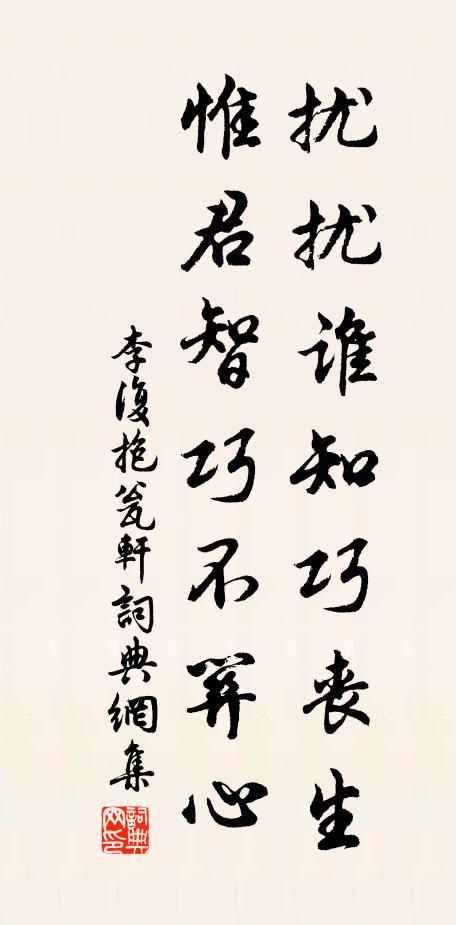 扰扰谁知巧丧生
惟君智巧不关心
李復抱瓮軒詞典網集
詞典
网印